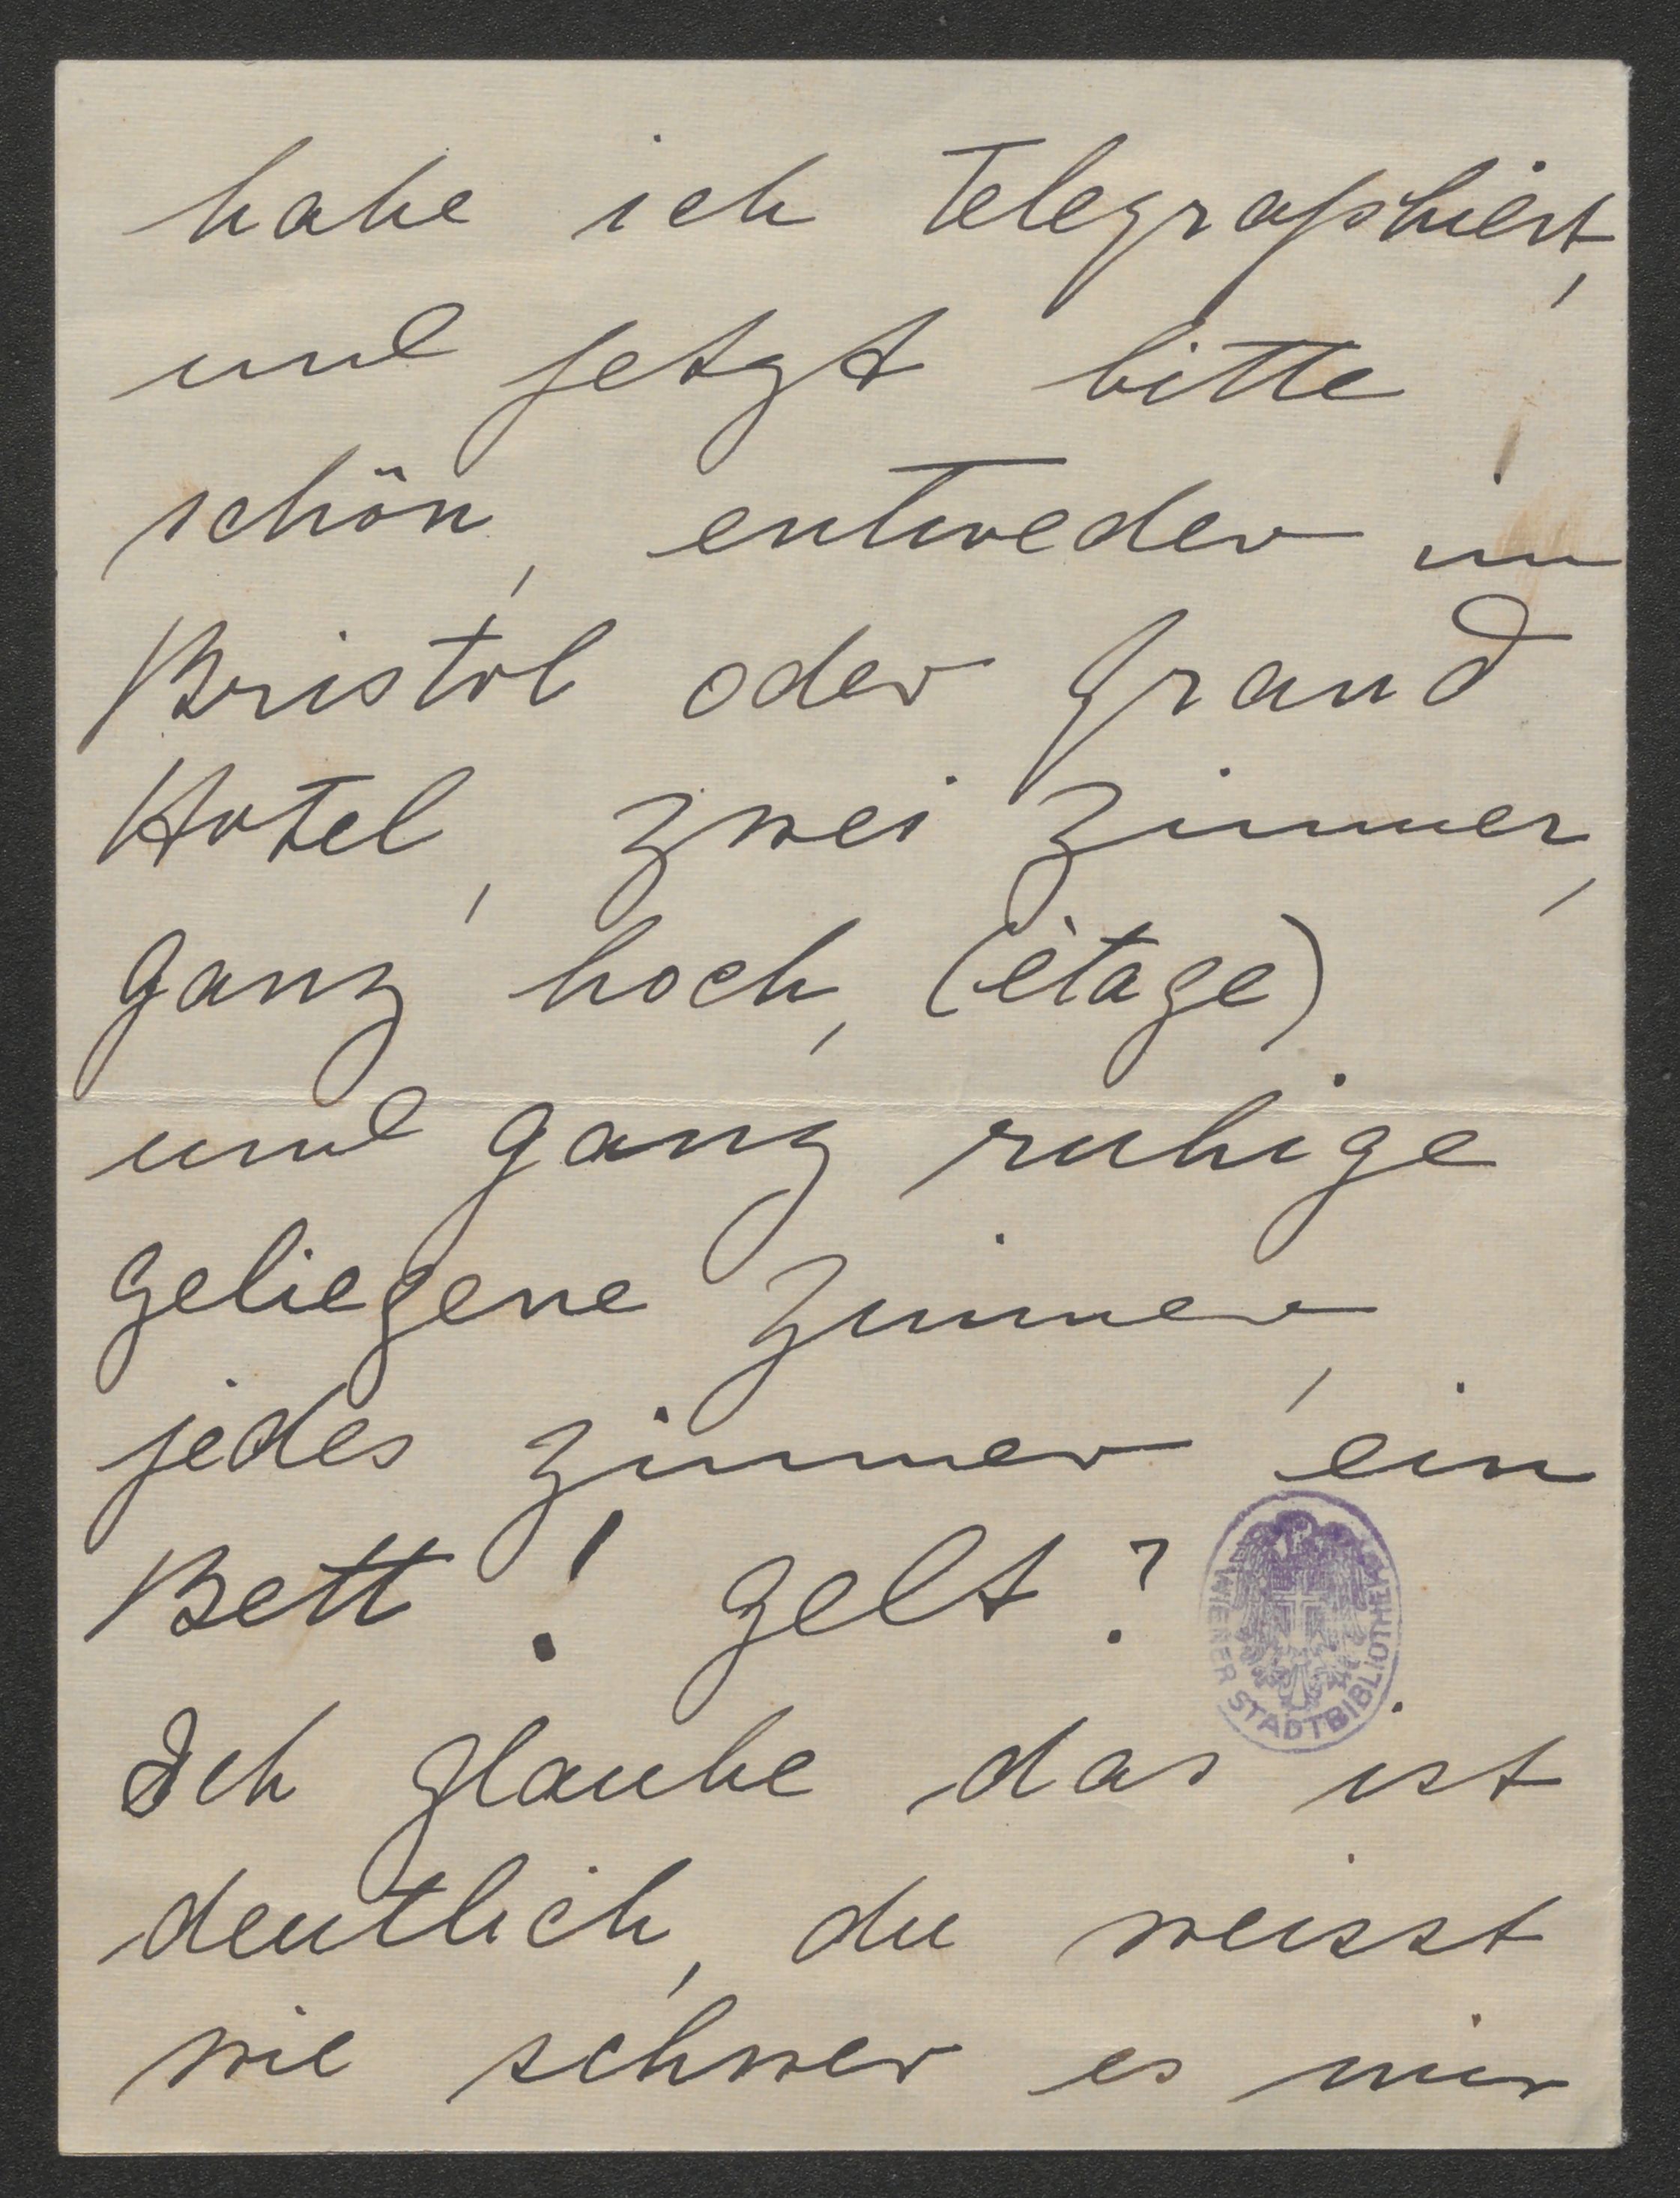 habe ich Telegraphiert,
und jetzt bitte
schön, entweder im
Bristol oder Grand
Hotel, zwei Zimmer,
ganz hoch, (ètage)
und ganz ruhige
geliegene Zimmer,
jedes Zimmer ein
Bett! gelt?
WIENER STADTBIBLIOTHEK
Ich glaube das ist
deutlich, du weisst
wie schwer es mir